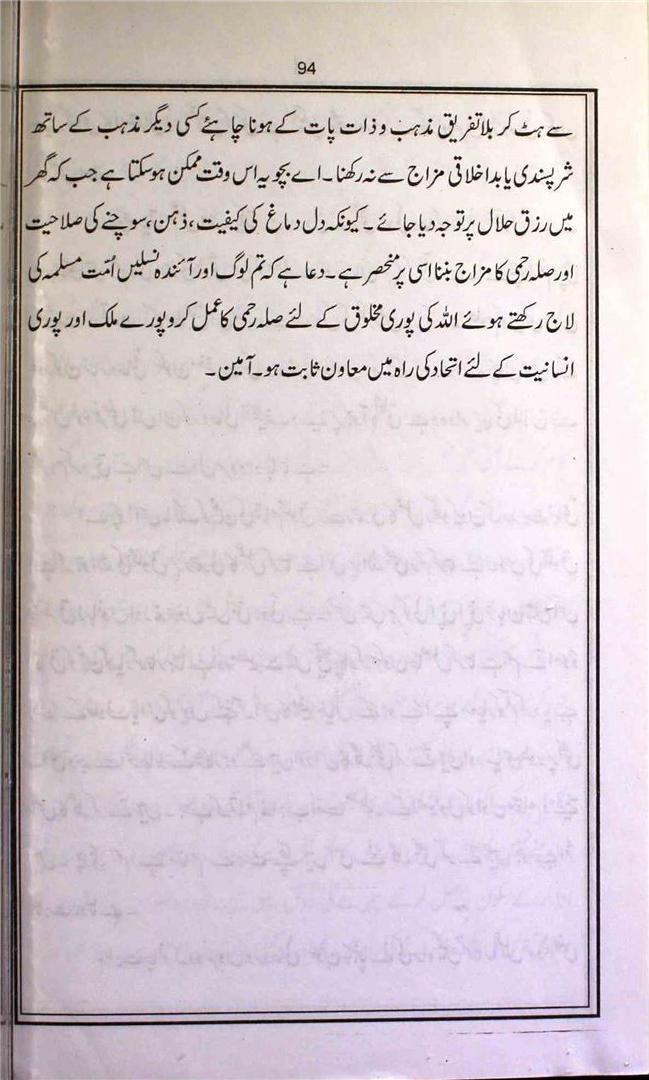 94
سے ہٹ کر بلا تفریق مذہب و ذات پات کے ہونا چاہئے کسی دیگر مذہب کے ساتھ
شر پسندی یا بد اخلاقی مزاج سے نہ رکھنا۔ اے بچو یہ اس وقت ممکن ہو سکتا ہے جب کہ گھر
میں رزق حلال پر توجہ دیا جائے۔ کیونکہ دل دماغ کی کیفیت، ذہن، سوچنے کی صلاحیت
اور صلہ رحمی کا مزاج بننا اسی پر منحصر ہے۔ دعا ہے کہ تم لوگ اور آئندہ نسلیں اُمّت مسلمہ کی
لاج رکھتے ہوئے اللہ کی پوری مخلوق کے لئے صلہ رحمی کا عمل کرو پورے ملک اور پوری
انسانیت کے لئے اتحاد کی راہ میں معاون ثابت ہو۔ آمین۔